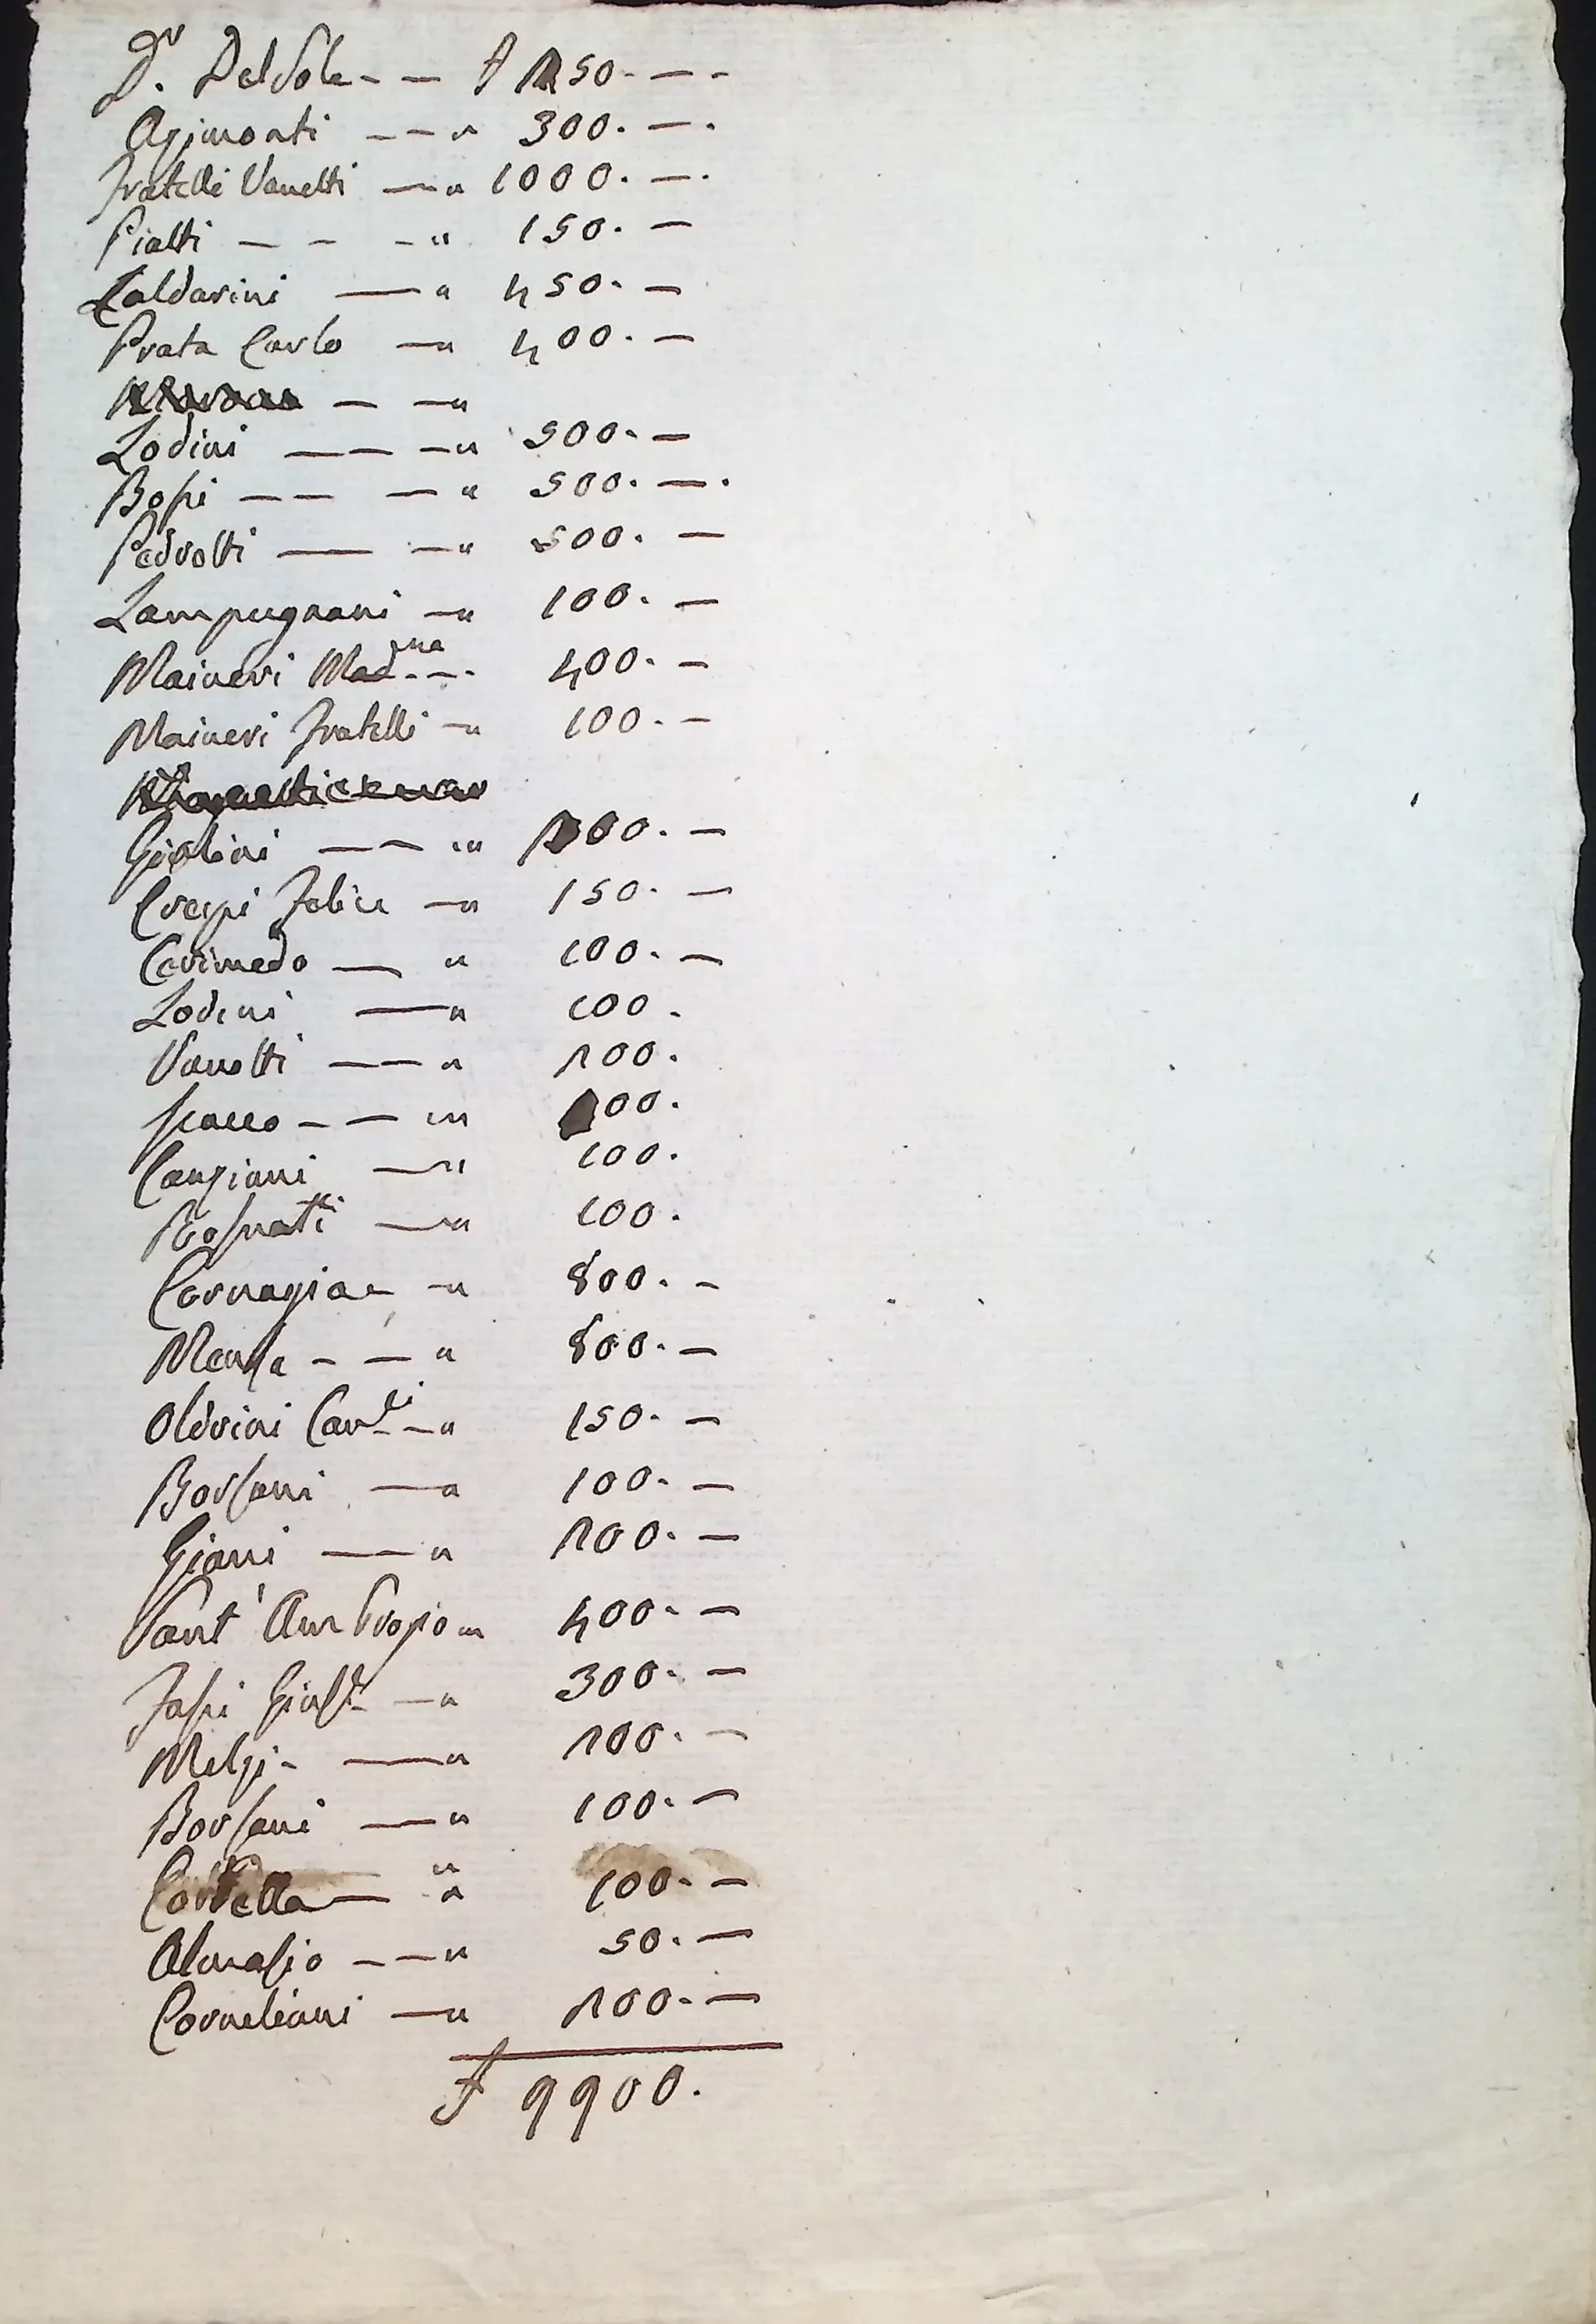 Dr. Del Sole - - £ 150. - -
Agimonti - - " 300. - .
Fratelli Vanetti - " 1000. - .
Pialti - - - " 150. -
Caldarini - " 450. -
Prata Carlo - " 400. -
- - "
Lodini - - - " 500. -
Bossi - - - " 500. - .
Pedrotti - - " 500. -
Lampugnani - " 100. -
Maineri Madna - - 400. -
Maineri Fratelli - " 100. -
Giolini - - " 00. -
Crespi Felice - " 150. -
Corimedo - " 100. -
Lodini - " 100.
Vanotti - - " 100.
Scacco - - " 00.
Cangiani - " 100.
Rosnati - " 100.
Cornagia - " 800. -
Mensa - - " 800. -
Oldrini Carli - " 150. -
Borsani - " 100. -
Giani - " 100. -
Sant' Ambrogio " 400. -
Fassi - " 300. -
Melzi - - " 100. -
Borsani - " 100. -
Corbella - " 100. -
Almasio - - " 50. -
Corneliani - " 100. -
£ 9900.